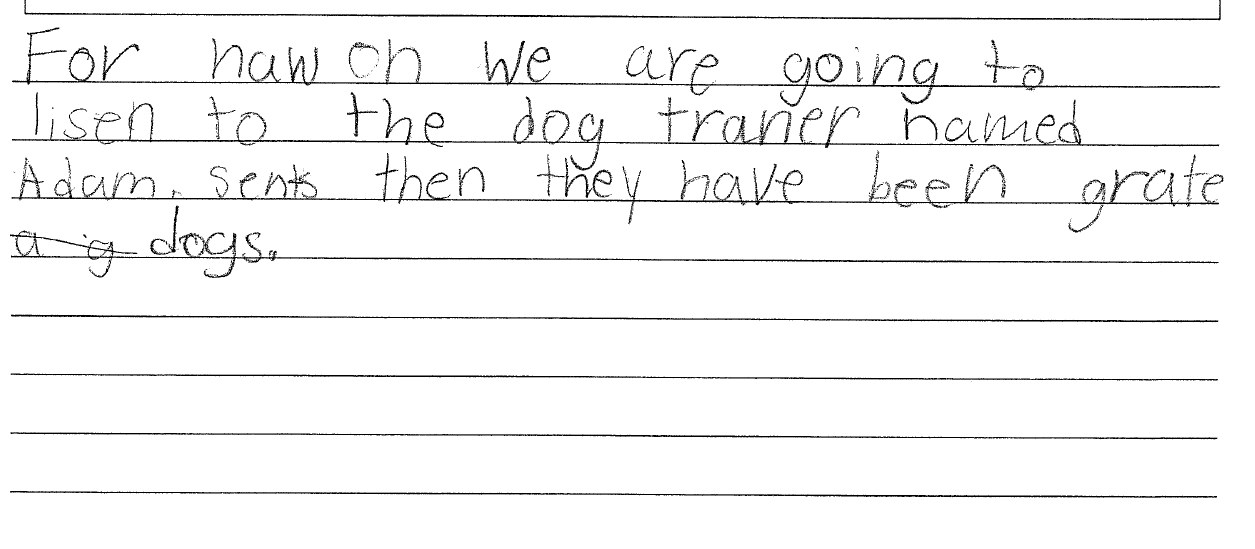 For naw on we are going to
lisen to the dog traner named
Adam. sents then they have been grate
a g dogs.